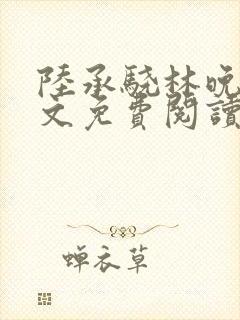 陸承驍林晚
文免費閱讀
蝉衣草